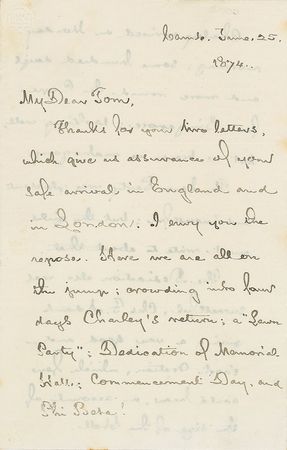 Camb. June. 25.
1874.
My Dear Tom,
Thanks for your two letters,
which give us assurance of your
safe arrival in England and
in London. I envy you the
repose. Here we are all on
the jump; crowding into four
days Charley's return; a "Lawn
Party"; Dedication of Memorial
Hall; Commencement Day, and
Phi Beta!